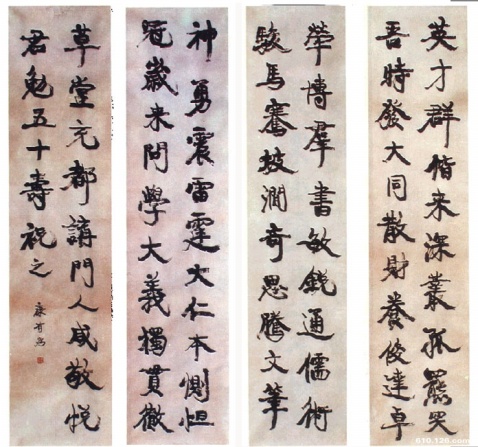 英才群偕来深叢孤羆
吾時發大同散財養俊達卓
犖博羣書敏銳通儒術
駿馬坡澗奇思騰文筆
神勇震雷霆大仁本惻怛
冠歲来問學大義獨貫徹
草堂充都講門人咸敬悅
君勉五十壽祝之
康有為
610.126.com